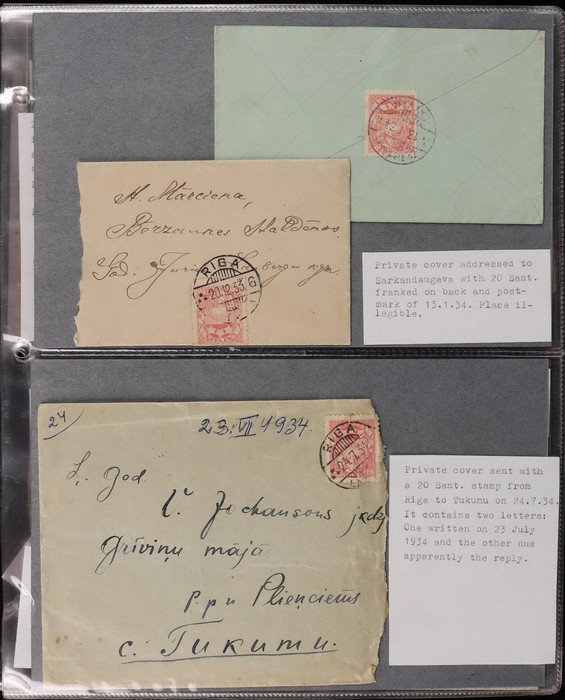 St. Mārciena,
Bērzaunes
God.
RIGA
20.12.33
Private cover addressed to
Sarkandaugava with 20 Sant.
franked on back and post-
mark of 13.1.34. Place il-
legible.
24
23. VII 1934.
RIGA
24.7.34
L. god.
Johansons
Grīviņu mājā
p. pa Plieņciems
c. Tukumu.
Private cover sent with
a 20 Sant. stamp from
Riga to Tukumu on 24.7.34.
It contains two letters:
One written on 23 July
1934 and the other one
apparently the reply.